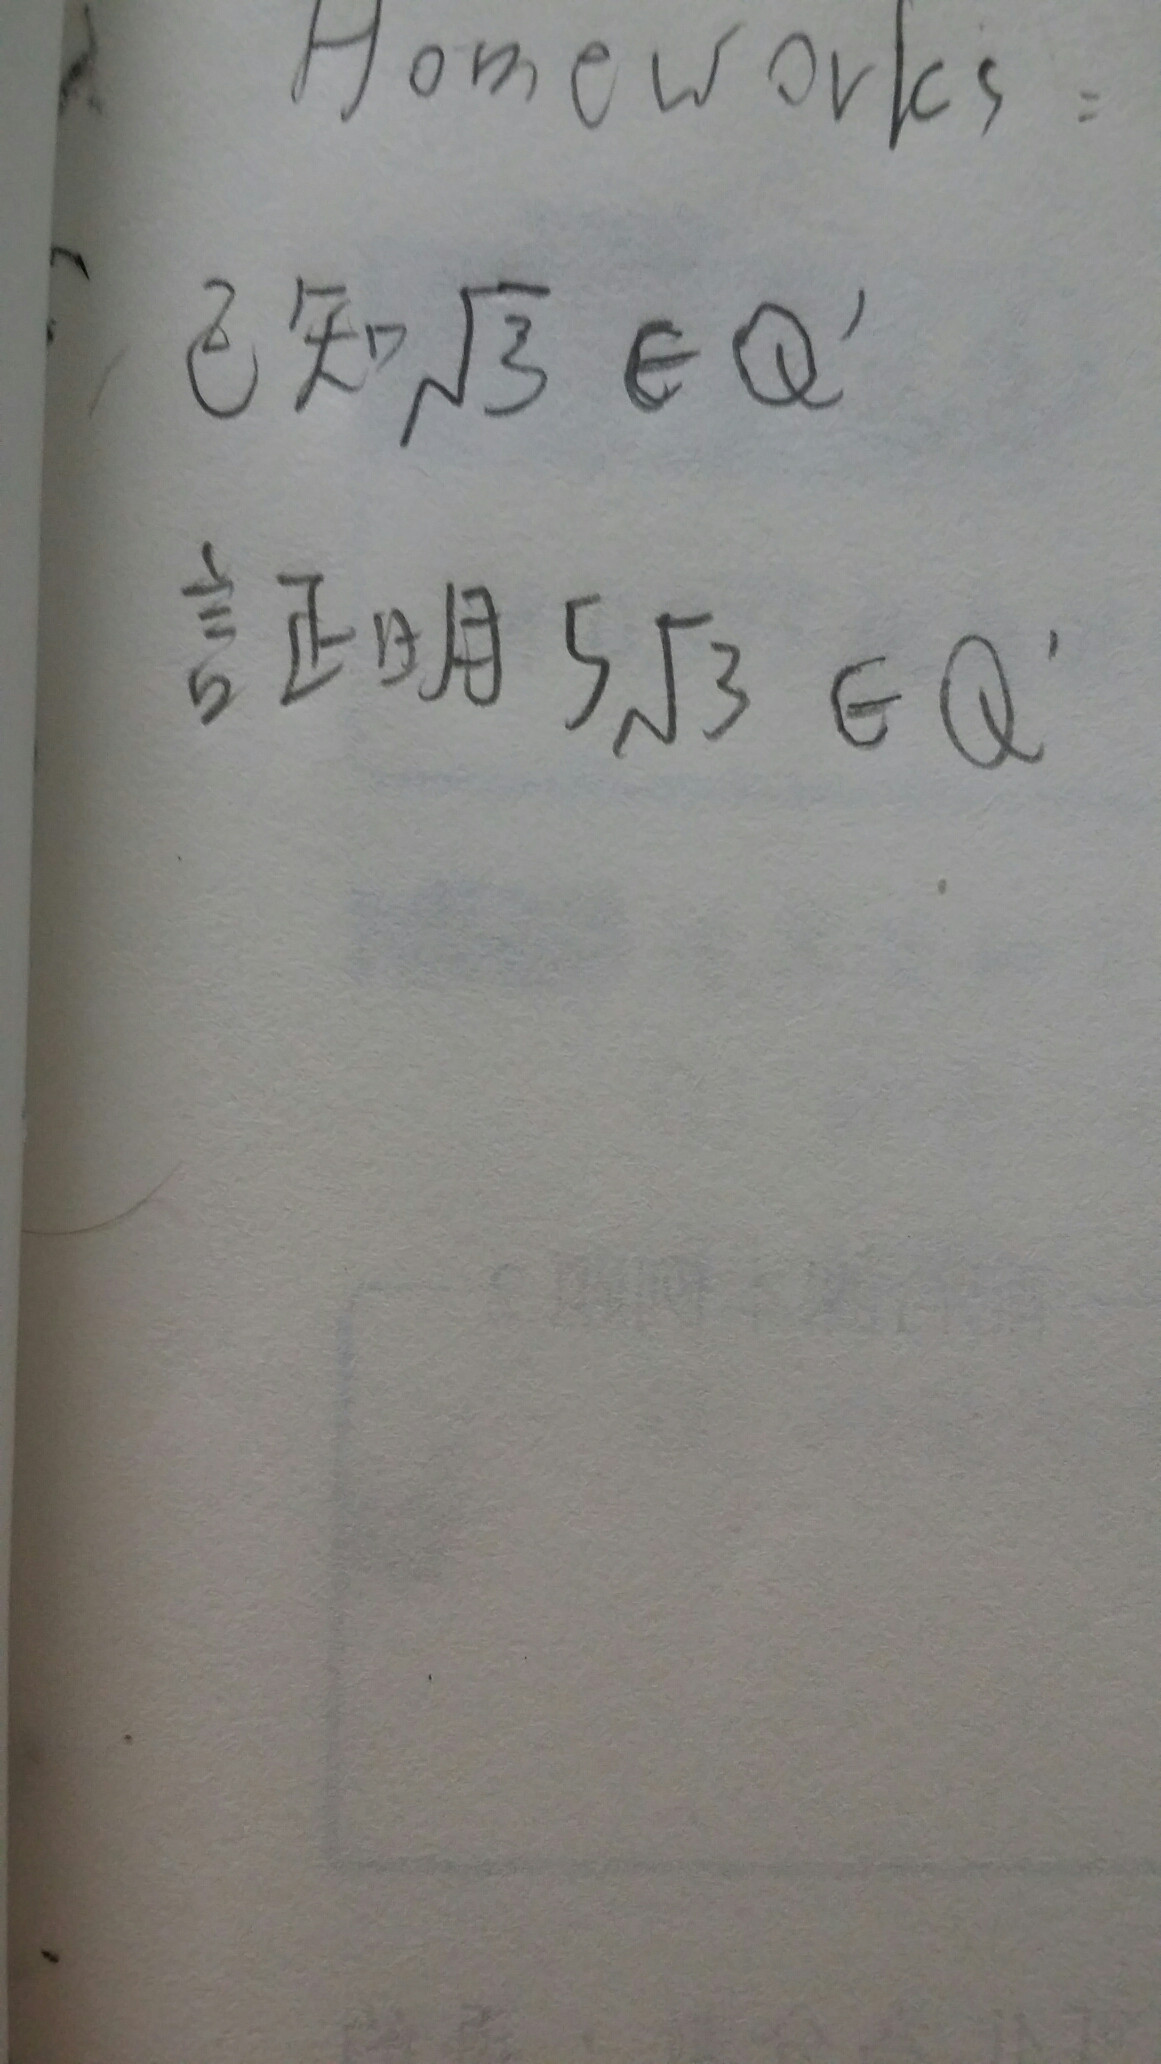 Homeworks:
已知√3 ∈ Q'
証明 5√3 ∈ Q'